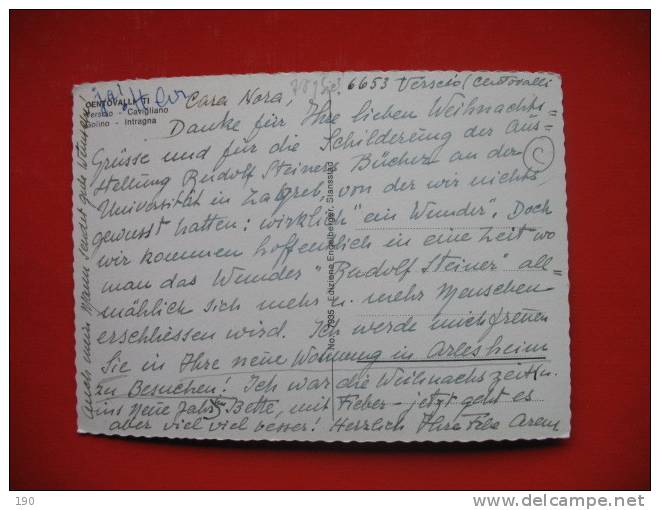 CENTOVALLI TI
Verscio - Cavigliano
Golino - Intragna
6653 Verscio (Centovalli
Cara Nora,
Danke für Ihre lieben Weihnachts=
Grüsse und für die Schilderung der Aus=
stellung Rudolf Steiners Bücher an der
Universität in Zagreb, von der wir nichts
gewusst hatten: wirklich "ein Wunder". Doch
wir kommen hoffentlich in eine Zeit wo
man das Wunder "Rudolf Steiner" all=
mählich sich mehr u. mehr Menschen
erschliessen wird. Ich werde mich freuen
Sie in Ihre neue Wohnung in Arlesheim
zu Besuchen! Ich war die Weihnachszeit u.
ins neue Jahr im Bette, mit Fieber - jetzt geht es
aber viel viel besser! Herzlich Ihre
Auch mein Mann sendet gute Wünsche!
No. 7935 - Edizione Engelberger, Stansstad
190
delcampe.net